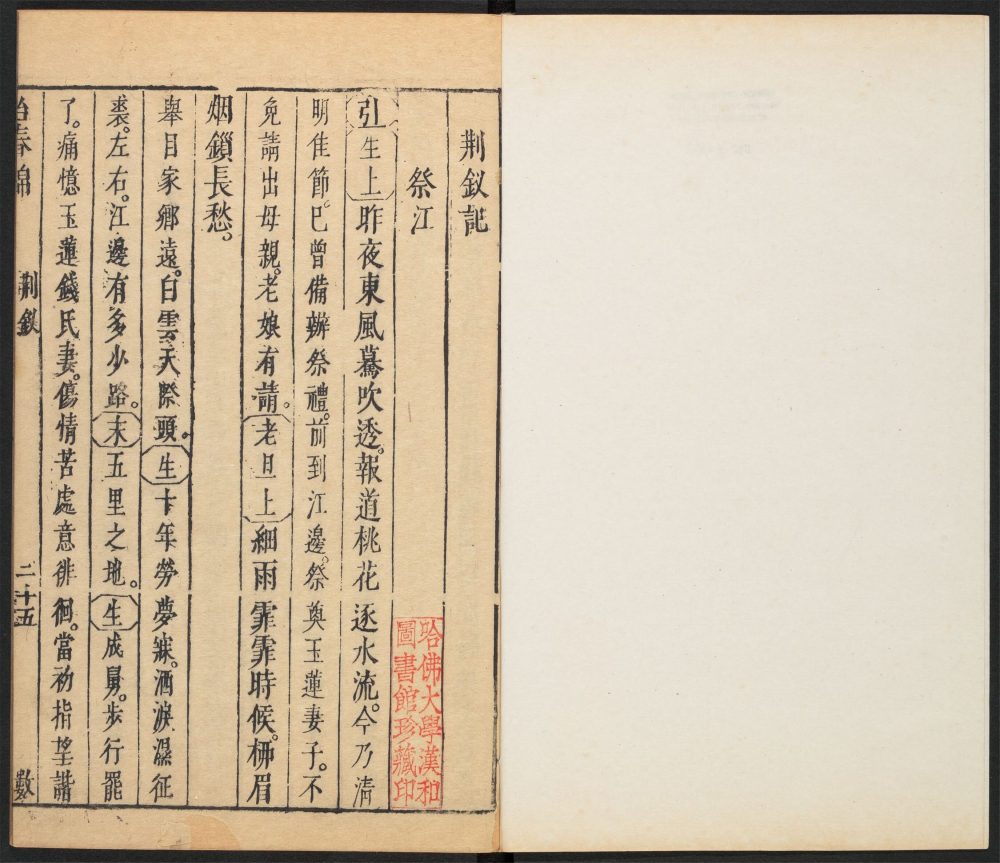 荆釵記
祭江
引生上昨夜東風驀吹透。報道桃花逐水流。今乃清
明佳節。已曾備辦祭禮。前到江邊。祭奠玉蓮妻子。不
免請出母親。老娘有請。老旦上細雨霏霏時候。柳眉
烟鎖長愁。
舉目家鄉遠。白雲天際頭。生卞年勞夢寐。洒淚濕征
裘。左右。江邊有多少路。末五里之地。生成舅。步行罷
了。痛憶玉蓮錢氏妻。傷情苦處意徘徊。當初指望諧
荆釵
二十五
數
哈佛大學漢和
圖書館珍藏印